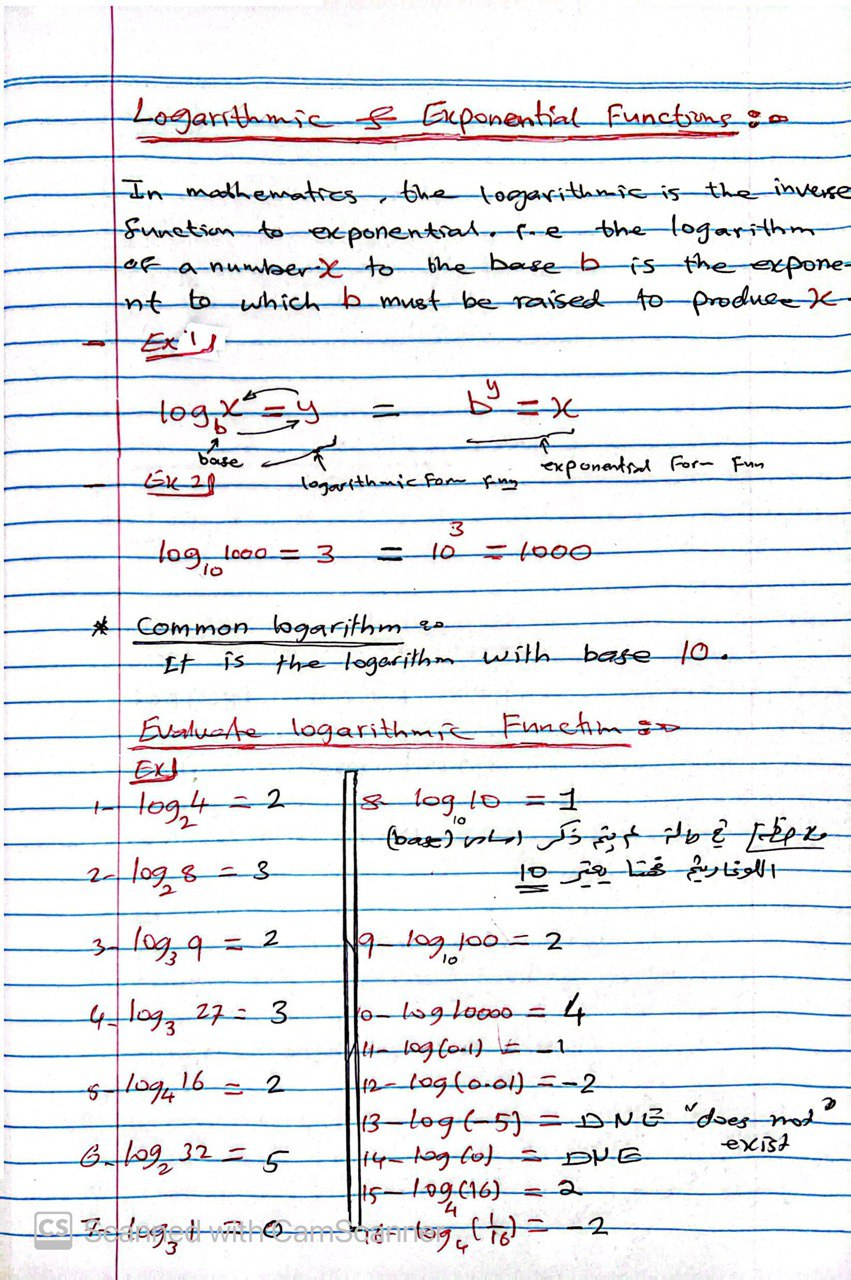 Logarithmic & Exponential Functions:-
In mathematics, the logarithmic is the inverse
function to exponential. I.e the logarithm
of a number x to the base b is the expone-
nt to which b must be raised to produce x.
- Ex 1
log_b x = y = b^y = x
base
logarithmic Form Fun
exponential Form Fun
- Ex 2
log_10 1000 = 3 = 10^3 = 1000
* Common logarithm :-
It is the logarithm with base 10.
Evaluate logarithmic Function :-
Ex
1- log_2 4 = 2
2- log_2 8 = 3
3- log_3 9 = 2
4- log_3 27 = 3
5- log_4 16 = 2
6- log_2 32 = 5
7- log_3 1 = 0
8- log_10 10 = 1
ملاحظة في حالة لم يتم ذكر اساس (base)
اللوغاريتم يعتبر 10
9- log_10 100 = 2
10- log 10000 = 4
11- log(0.1) = -1
12- log(0.01) = -2
13- log(-5) = DNE "does not
exist"
14- log(0) = DNE
15- log_4(16) = 2
16- log_4(1/16) = -2
CS Scanned with CamScanner